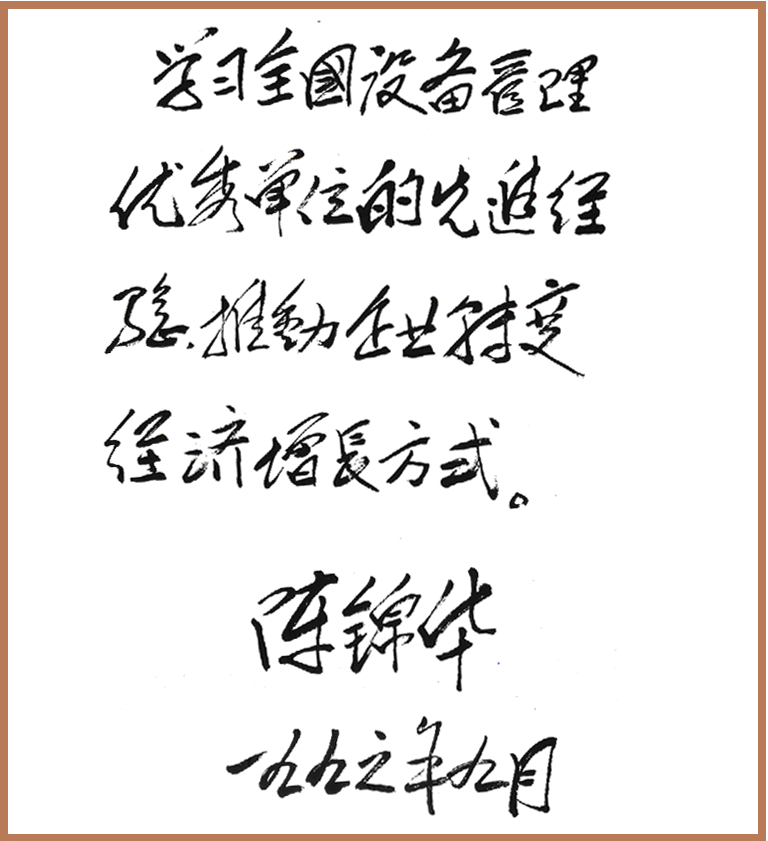 学习全國设备管理
优秀单位的先進经
验,推動企业转变
经济增長方式。
陈锦华
一九九六年九月